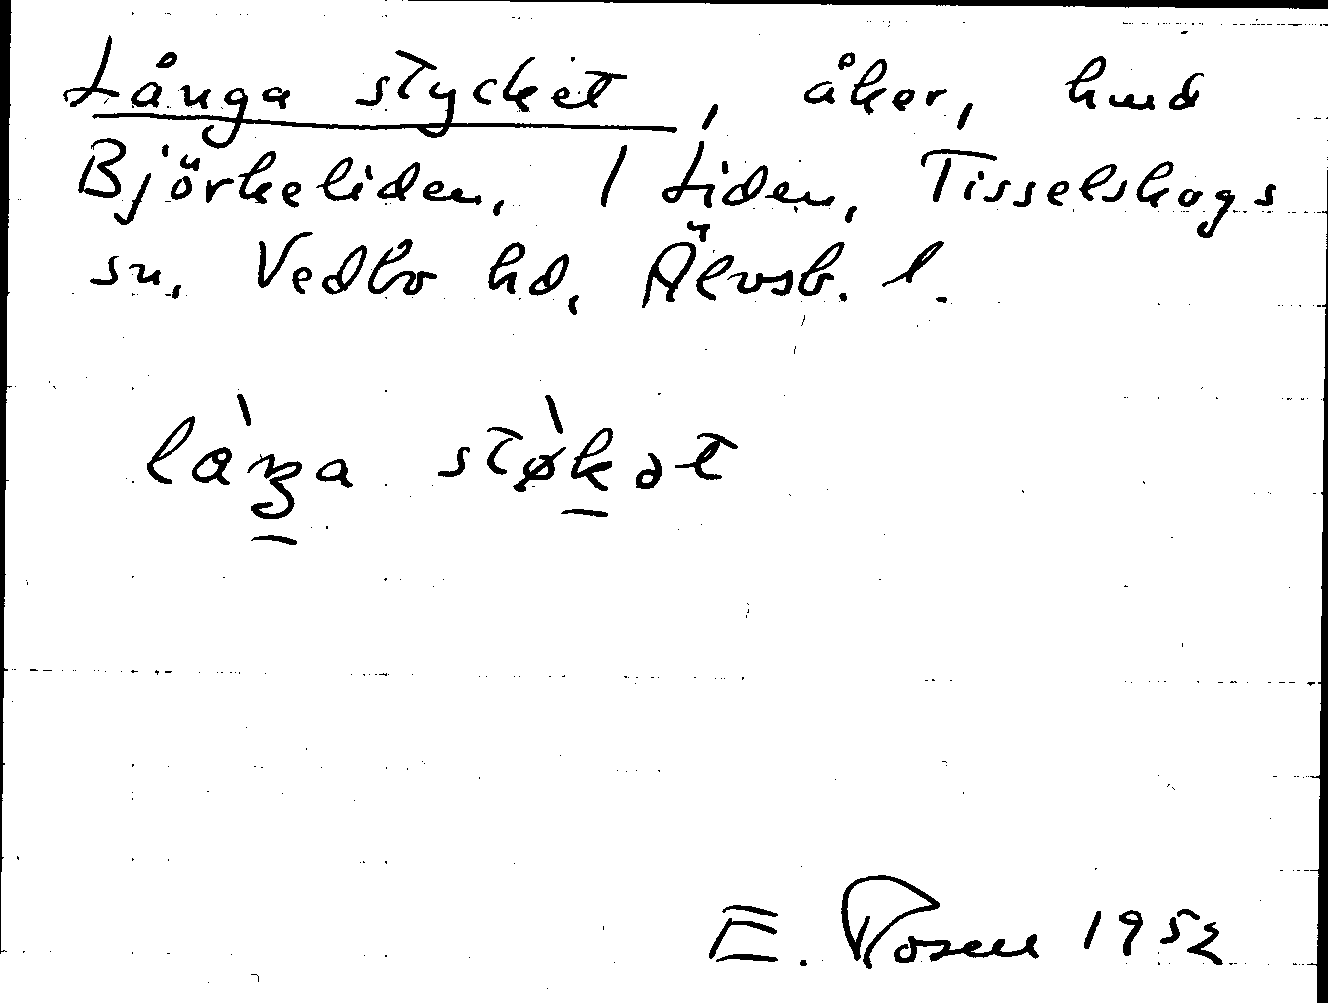 Långa stycket, åker, hmd
Björkeliden, 1 Liden, Tisselskogs
sn, Vedbo hd, Älvsb. l.
làŋa stø̀kət
E. Rosen 1952